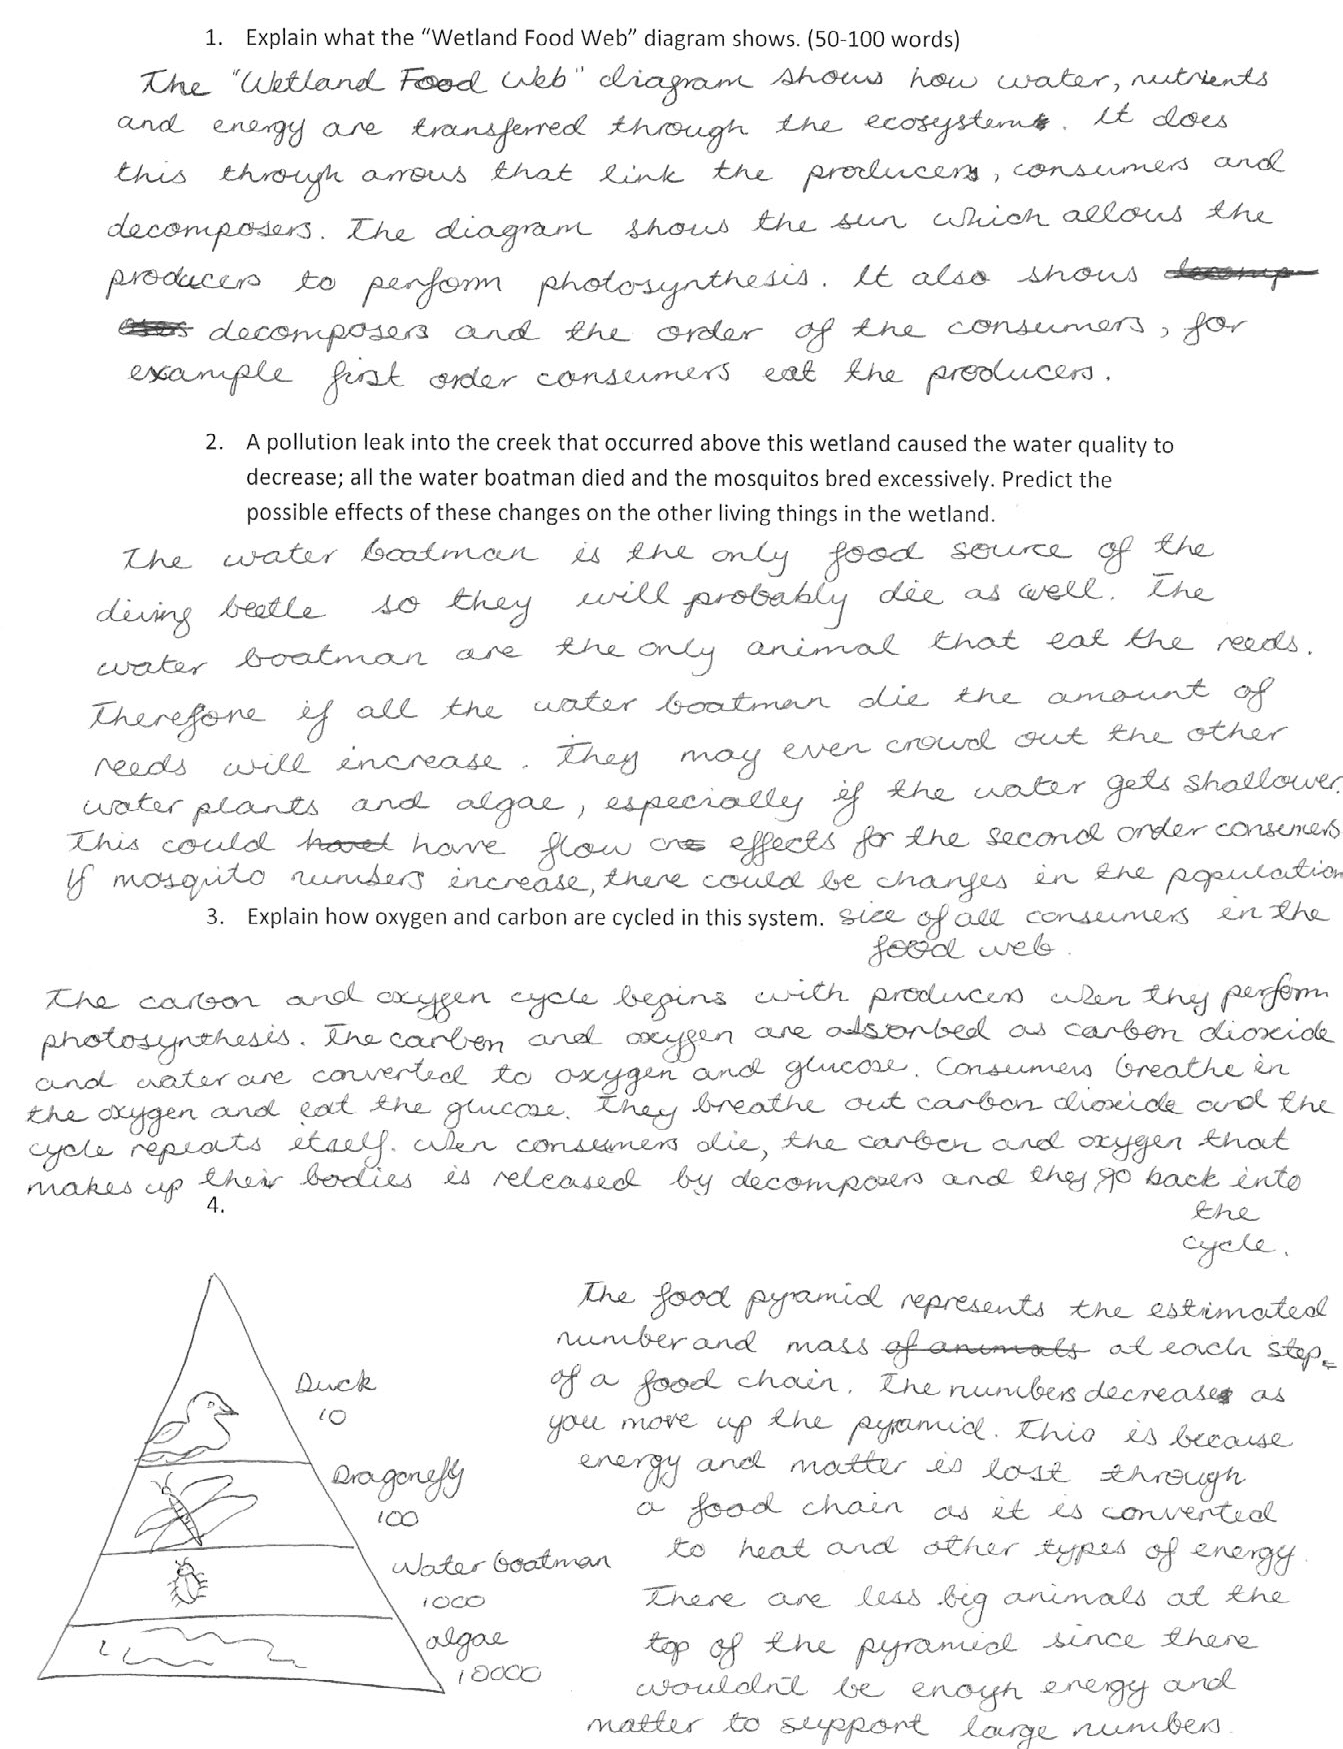 1. Explain what the “Wetland Food Web” diagram shows. (50-100 words)
The "Wetland Food Web" diagram shows how water, nutrients
and energy are transferred through the ecosystem. It does
this through arrows that link the producers, consumers and
decomposers. The diagram shows the sun which allows the
producers to perform photosynthesis. It also shows
decomposers and the order of the consumers, for
example first order consumers eat the producers.
2. A pollution leak into the creek that occurred above this wetland caused the water quality to
decrease; all the water boatman died and the mosquitos bred excessively. Predict the
possible effects of these changes on the other living things in the wetland.
The water boatman is the only food source of the
diving beetle so they will probably die as well. The
water boatman are the only animal that eat the reeds.
Therefore if all the water boatman die the amount of
reeds will increase. They may even crowd out the other
water plants and algae, especially if the water gets shallower.
This could have flow one effects for the second order consumers
If mosquito numbers increase, there could be changes in the population
3. Explain how oxygen and carbon are cycled in this system. size of all consumers in the
food web.
The carbon and oxygen cycle begins with producers when they perform
photosynthesis. The carbon and oxygen are absorbed as carbon dioxide
and water are converted to oxygen and glucose. Consumers breathe in
the oxygen and eat the glucose. They breathe out carbon dioxide and the
cycle repeats itself. When consumers die, the carbon and oxygen that
makes up their bodies is released by decomposers and they go back into
the
cycle.
4.
The food pyramid represents the estimated
number and mass of animals at each step
of a food chain. The numbers decrease as
you move up the pyramid. This is because
energy and matter is lost through
a food chain as it is converted
to heat and other types of energy.
There are less big animals at the
top of the pyramid since there
wouldn't be enough energy and
matter to support large numbers.
Duck
10
Dragonefly
100
Water boatman
1000
algae
10000